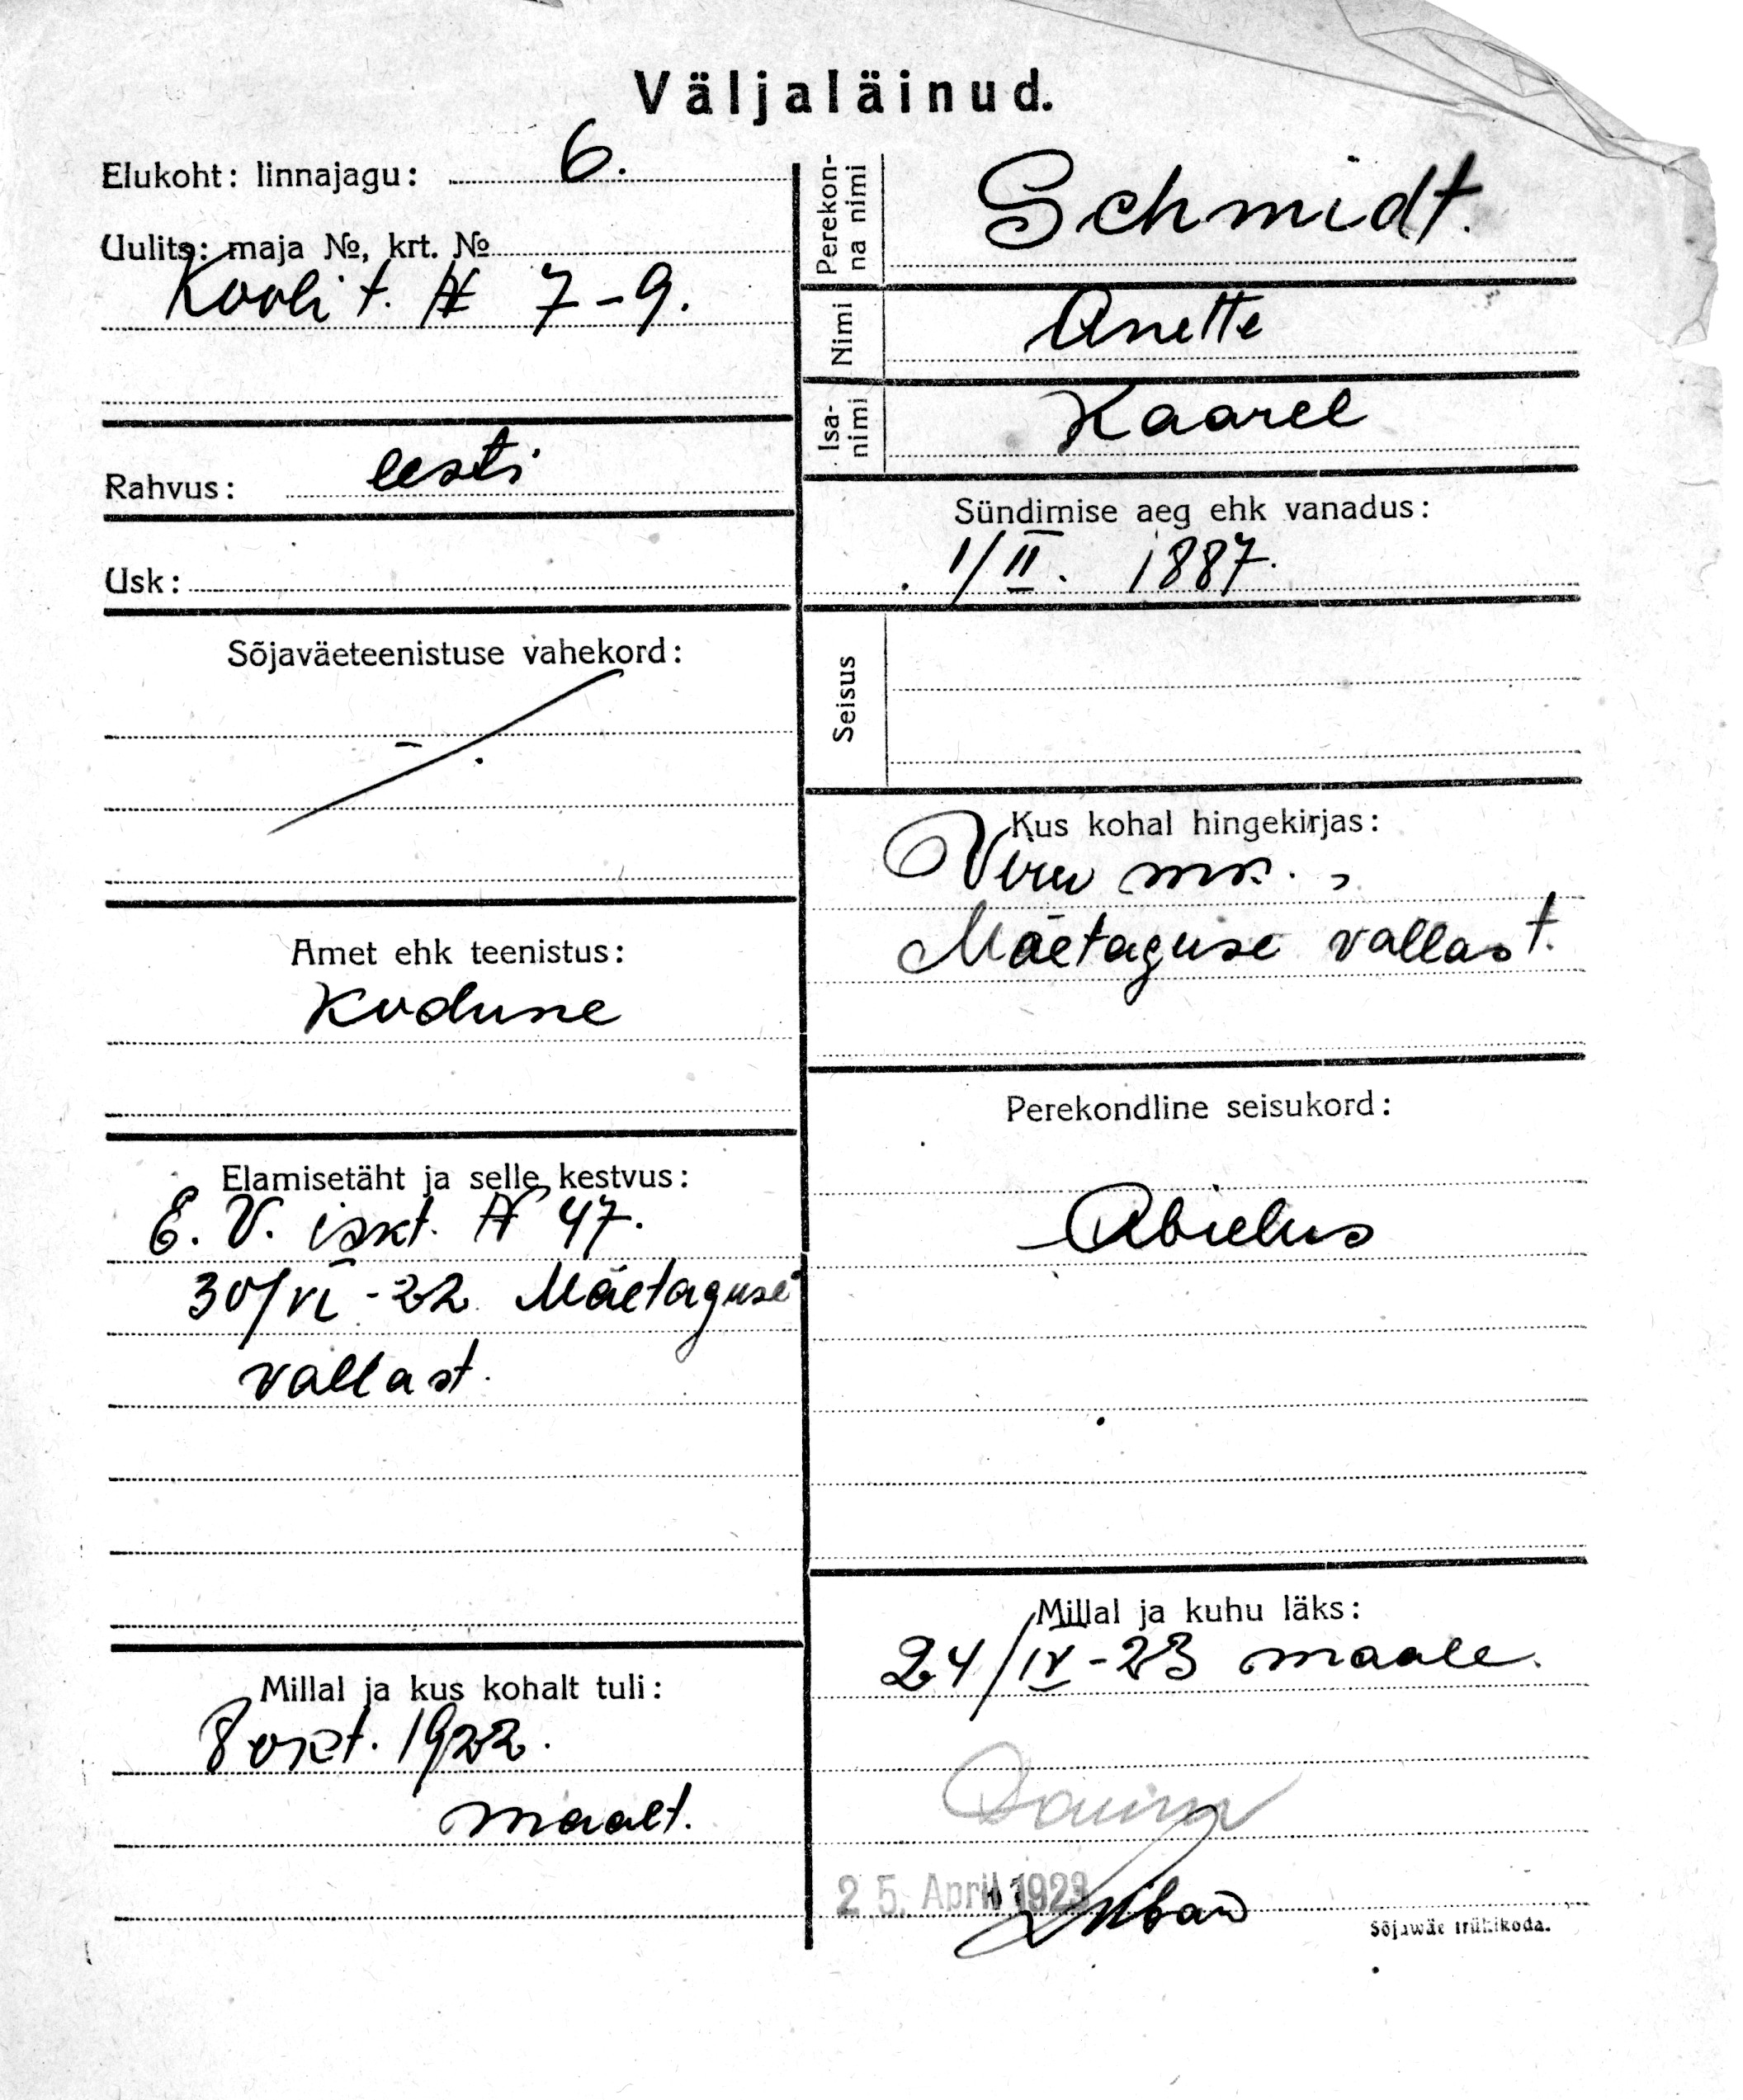 Väljaläinud.
Elukoht: linnajagu: 6.
Uulits: maja №, krt. №
Kooli t. № 7-9.
Rahvus: eesti
Usk:
Sõjaväeteenistuse vahekord:
Amet ehk teenistus:
Kodune
Elamisetäht ja selle kestvus:
E. V. iskt. № 47.
30/VI - 22. Mäetaguse
vallast.
Millal ja kus kohalt tuli:
8 okt. 1922.
maalt.
Perekon-
na nimi
Schmidt.
Nimi
Anette
Isa-
nimi
Kaarel
Sündimise aeg ehk vanadus:
1/II. 1887.
Seisus
Kus kohal hingekirjas:
Viru mk.,
Mäetaguse vallast.
Perekondline seisukord:
Abielus
Millal ja kuhu läks:
24/IV - 23 maale.
25. April 1923
Sõjawäe trükikoda.